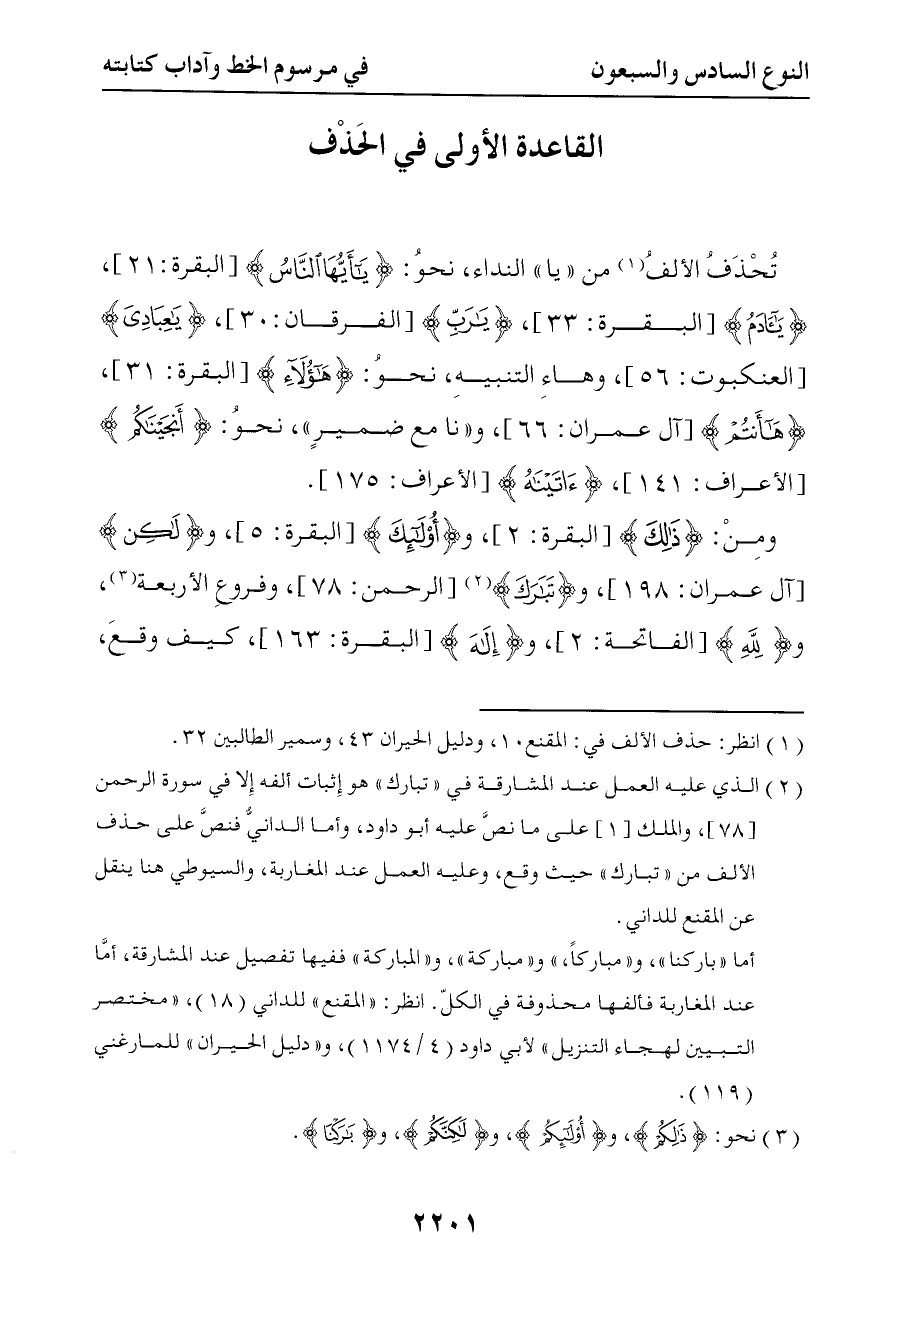 النوع السادس والسبعون في مرسوم الخط وآداب كتابته
القاعدة الأولى في الحَذْف
تُحْذَفُ الألفُ(١) من «يا» النداء، نحوُ: ﴿يَٰٓأَيُّهَا ٱلنَّاسُ﴾ [البقرة: ٢١]،
﴿يَٰٓـَٔادَمُ﴾ [البقرة: ٣٣]، ﴿يَٰرَبِّ﴾ [الفرقان: ٣٠]، ﴿يَٰعِبَادِىَ﴾
[العنكبوت: ٥٦]، وهاءِ التنبيه، نحوُ: ﴿هَٰٓؤُلَآءِ﴾ [البقرة: ٣١]،
﴿هَٰٓأَنتُمْ﴾ [آل عمران: ٦٦]، و«نا مع ضميرٍ»، نحوُ: ﴿أَنجَيْنَٰكُم﴾
[الأعراف: ١٤١]، ﴿ءَاتَيْنَٰهُ﴾ [الأعراف: ١٧٥].
ومِنْ: ﴿ذَٰلِكَ﴾ [البقرة: ٢]، و﴿أُوْلَٰٓئِكَ﴾ [البقرة: ٥]، و﴿لَٰكِنِ﴾
[آل عمران: ١٩٨]، و﴿تَبَٰرَكَ﴾(٢) [الرحمن: ٧٨]، وفروعِ الأربعة(٣)،
و﴿لِلَّهِ﴾ [الفاتحة: ٢]، و﴿إِلَٰهَ﴾ [البقرة: ١٦٣]، كيف وقعَ،
(١) انظر: حذف الألف في: المقنع ١٠، ودليل الحيران ٤٣، وسمير الطالبين ٣٢.
(٢) الذي عليه العمل عند المشارقة في «تبارك» هو إثبات ألفه إلا في سورة الرحمن
[٧٨]، والملك [١] على ما نصَّ عليه أبو داود، وأما الدانيُّ فنصَّ على حذف
الألف من «تبارك» حيث وقع، وعليه العمل عند المغاربة، والسيوطي هنا ينقل
عن المقنع للداني.
أما «باركنا»، و«مباركاً،» و«مباركة»، و«المباركة» ففيها تفصيل عند المشارقة، أمَّا
عند المغاربة فألفها محذوفة في الكلّ. انظر: «المقنع» للداني (١٨)، «مختصر
التبيين لهجاء التنزيل» لأبي داود (٤/ ١١٧٤)، و«دليل الحيران» للمارغني
(١١٩).
(٣) نحو: ﴿ذَٰلِكُمْ﴾، و﴿أُوْلَٰٓئِكُمْ﴾، و﴿لَٰكِنَّكُمْ﴾، و﴿بَٰرَكْنَا﴾.
٢٢٠١